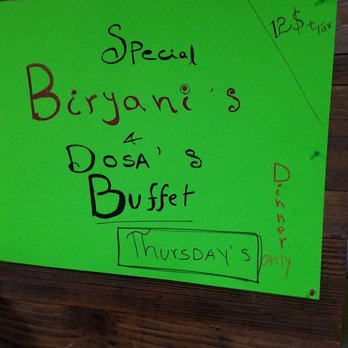 Special
12$ + Tax
Biryani's
&
DOSA's
Buffet
THURSDAY'S
Dinner
only